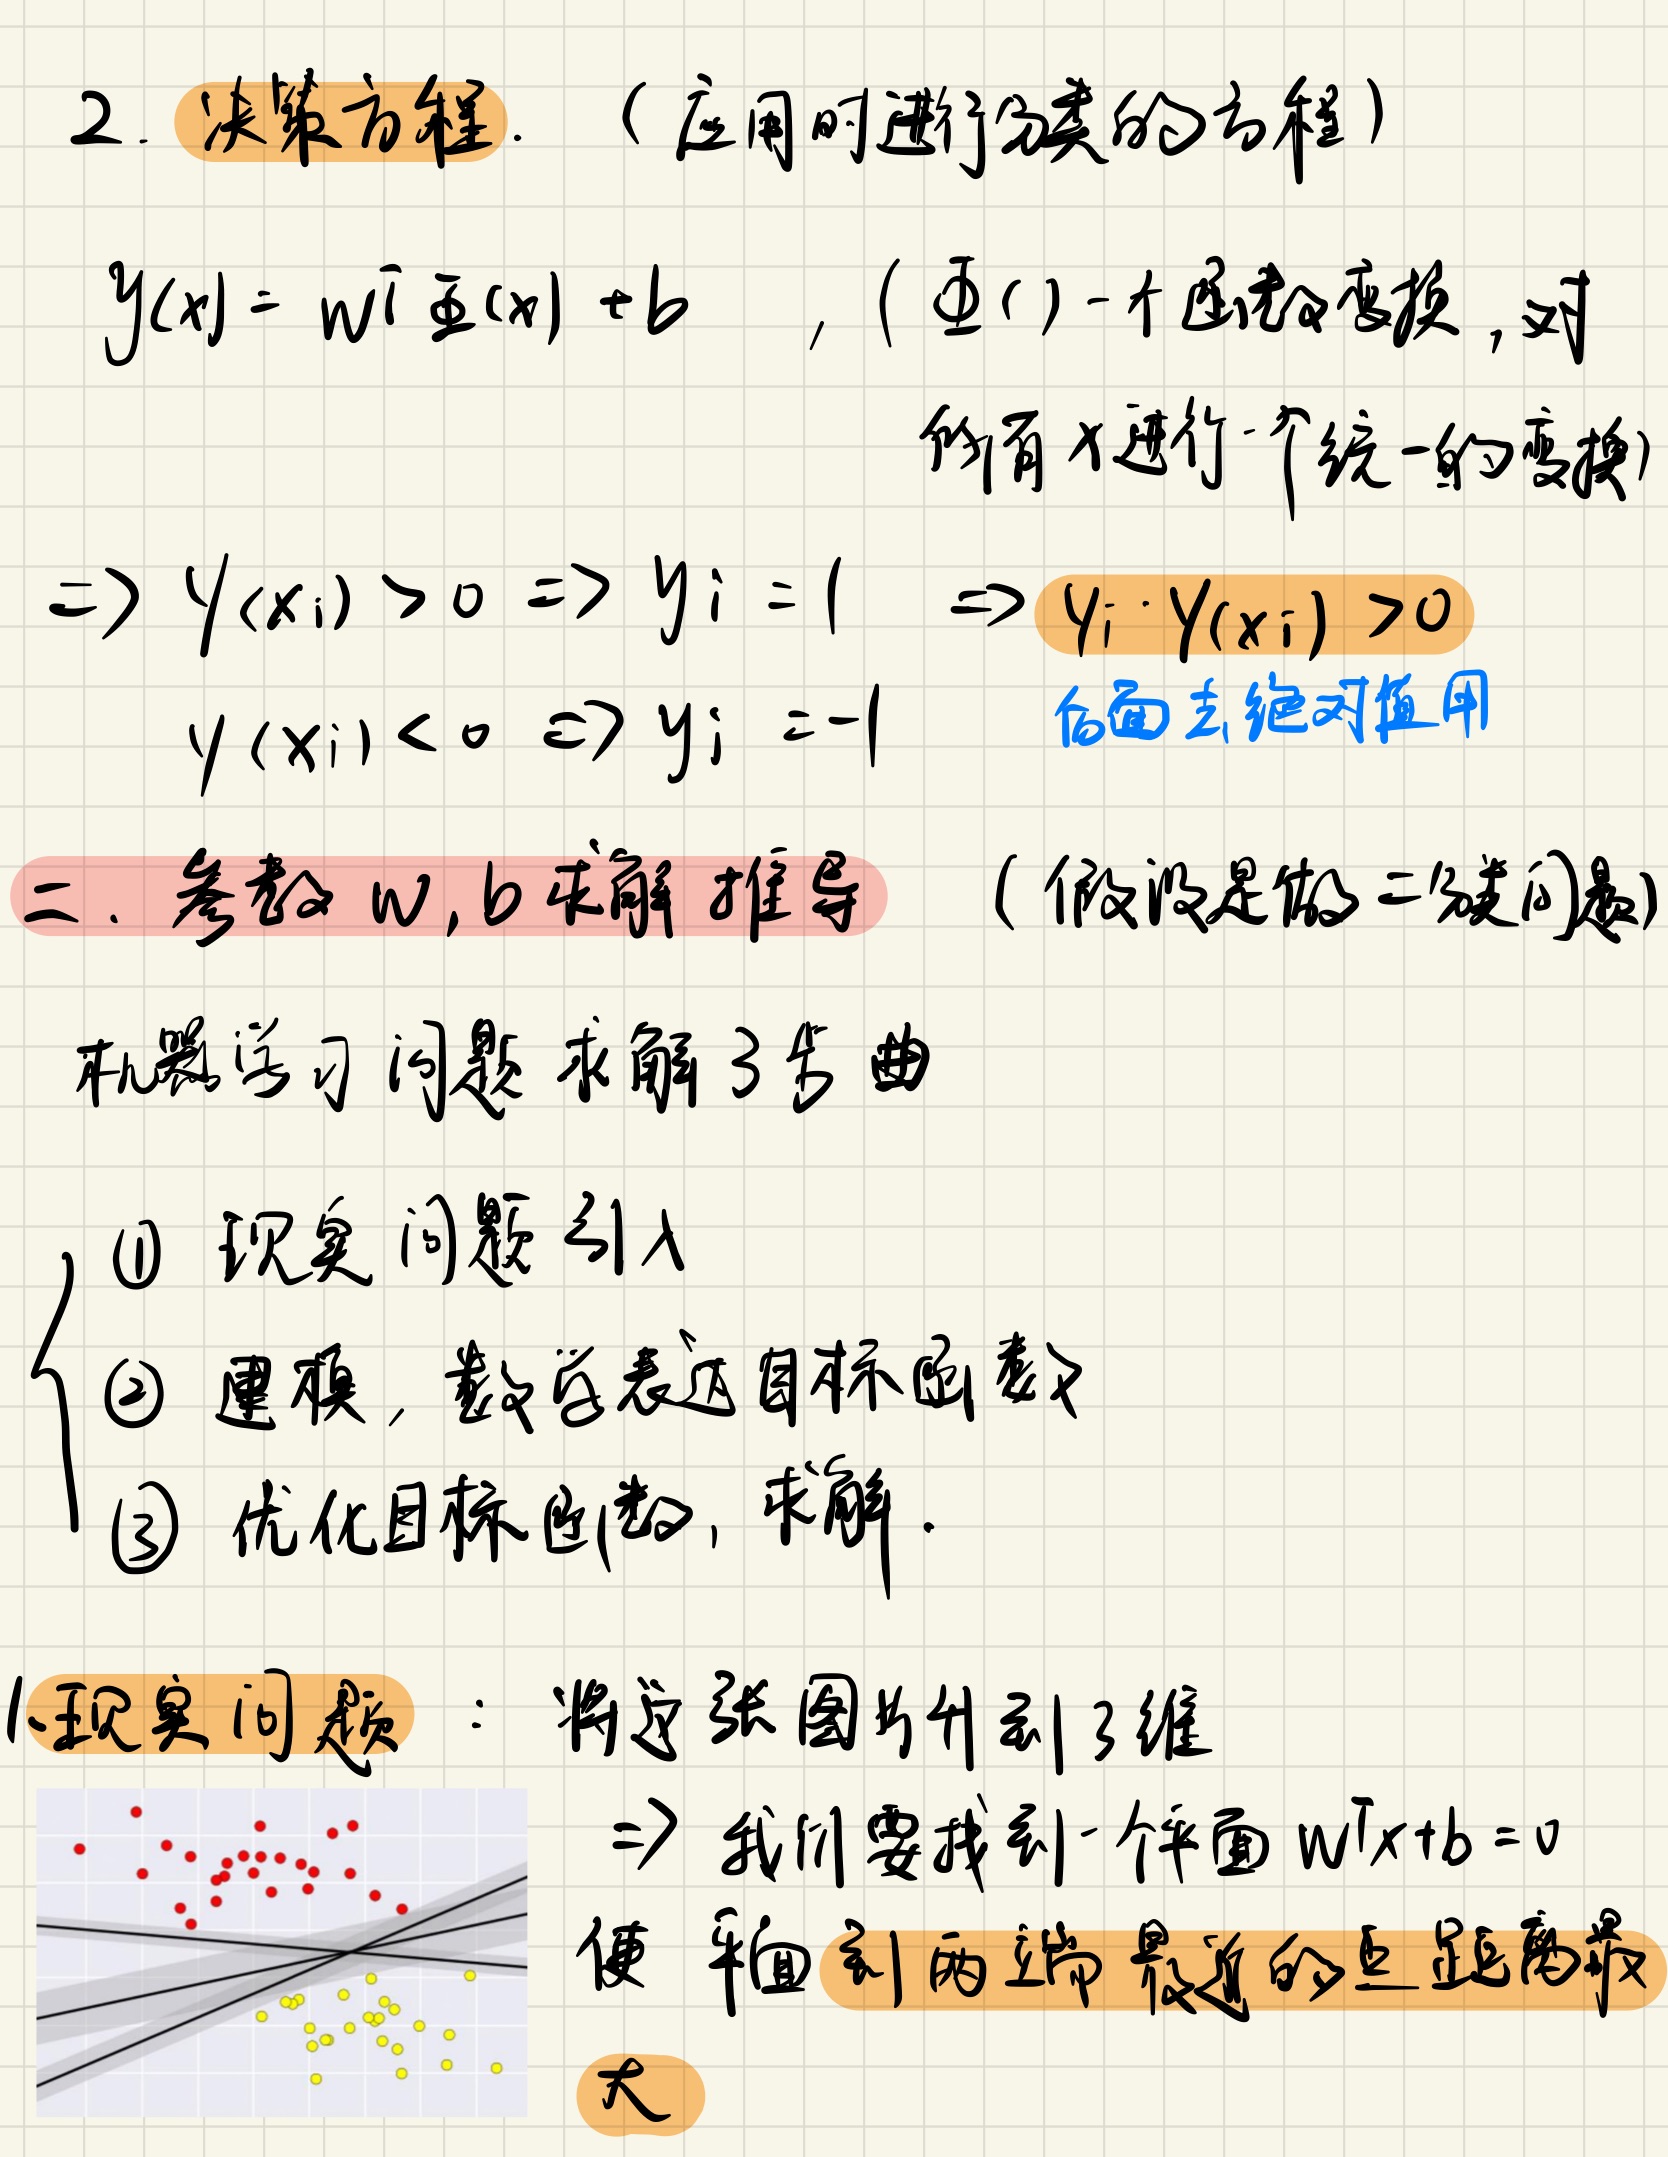 2. 决策方程. (应用时进行分类的方程)
y(x) = wᵀΦ(x) + b , (Φ()一个函数变换,对
所有x进行一个统一的变换)
=> y(xi) > 0 => yi = 1 => yi·y(xi) > 0
y(xi) < 0 => yi = -1 后面去绝对值用
二. 参数 w,b 求解推导 (假设是做二分类问题)
机器学习问题求解3步曲
① 现实问题引入
② 建模, 数学表达目标函数
③ 优化目标函数, 求解.
1.现实问题 : 将这张图片升到3维
=> 我们要找到一个平面 wᵀx+b=0
使平面到两端最近的点距离最
大